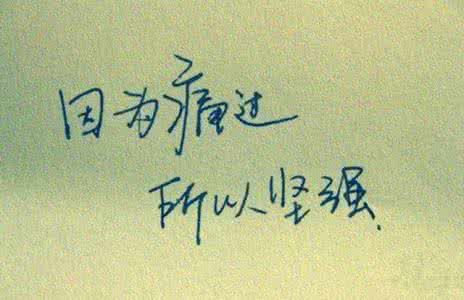 因为痛过
所以坚强.